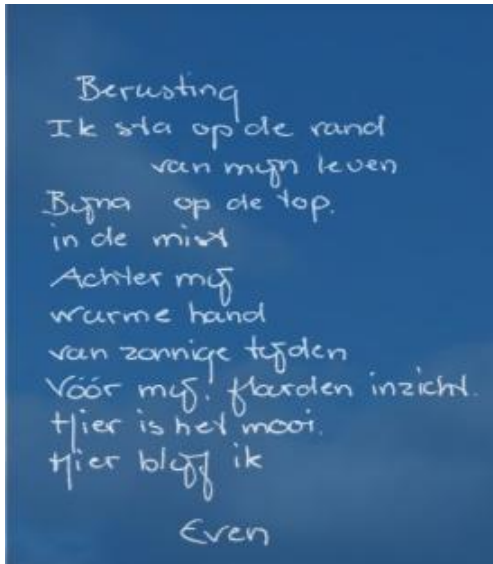 Berusting
Ik sta op de rand
van mijn leven
Bijna op de top.
in de mist
Achter mij
warme hand
van zonnige tijden
Vóór mij: flarden inzicht.
Hier is het mooi.
Hier blijf ik
Even